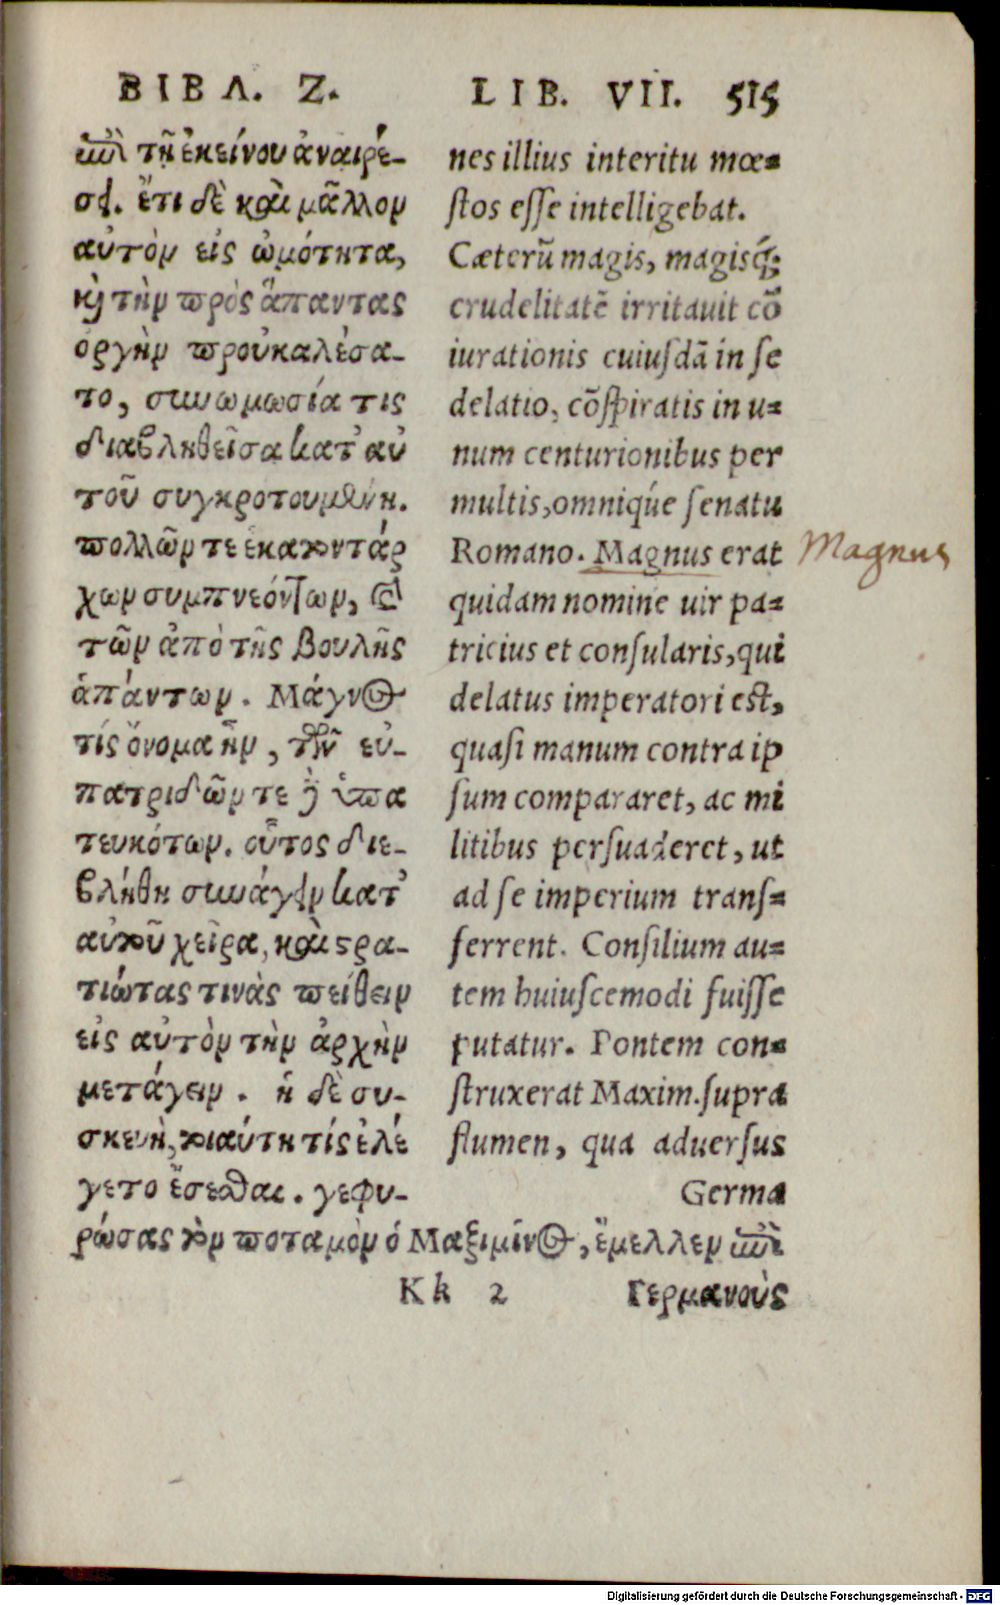 ΒΙΒΛ. Ζ.
ἐπὶ τῇ ἐκείνου ἀναιρέ-
σει. ἔτι δὲ καὶ μᾶλλον
αὐτὸν εἰς ὠμότητα,
καὶ τὴν πρὸς ἅπαντας
ὀργὴν προὐκαλέσα-
το, συνωμωσία τις
διαβληθεῖσα κατ' αὐ
τοῦ συγκροτουμένη.
πολλῶν τε ἑκατοντάρ
χων συμπνεόντων, καὶ
τῶν ἀπὸ τῆς βουλῆς
ἁπάντων. Μάγνος
τίς ὄνομα ἦν, τῶν εὐ-
πατριδῶν τε καὶ ὑπα
τευκότων. οὗτος διε-
βλήθη συνάγειν κατ'
αὐτοῦ χεῖρα, καὶ στρα-
τιώτας τινὰς πείθειν
εἰς αὐτὸν τὴν ἀρχὴν
μετάγειν. ἡ δὲ συ-
σκευὴ, τοιαύτη τίς ἐλέ
γετο ἔσεσθαι. γεφυ-
ρώσας τὸν ποταμὸν ὁ Μαξιμῖνος, ἔμελλεν ἐπὶ
LIB. VII. 515
nes illius interitu mœ-
ſtos eſſe intelligebat.
Cæterũ magis, magisq́;
crudelitatẽ irritauit cõ
iurationis cuiuſdã in ſe
delatio, cõſpiratis in u-
num centurionibus per
multis, omniq́ue ſenatu
Romano. Magnus erat
quidam nomine uir pa-
tricius et conſularis, qui
delatus imperatori eſt,
quaſi manum contra ip
ſum compararet, ac mi
litibus perſuaderet, ut
ad ſe imperium transſ-
ferrent. Conſilium au-
tem huiuſcemodi fuiſſe
putatur. Pontem con-
ſtruxerat Maxim. ſupra
flumen, qua aduerſus
Germa
Magnus
Kk 2 Γερμανοὺς
Digitalisierung gefördert durch die Deutsche Forschungsgemeinschaft - DFG